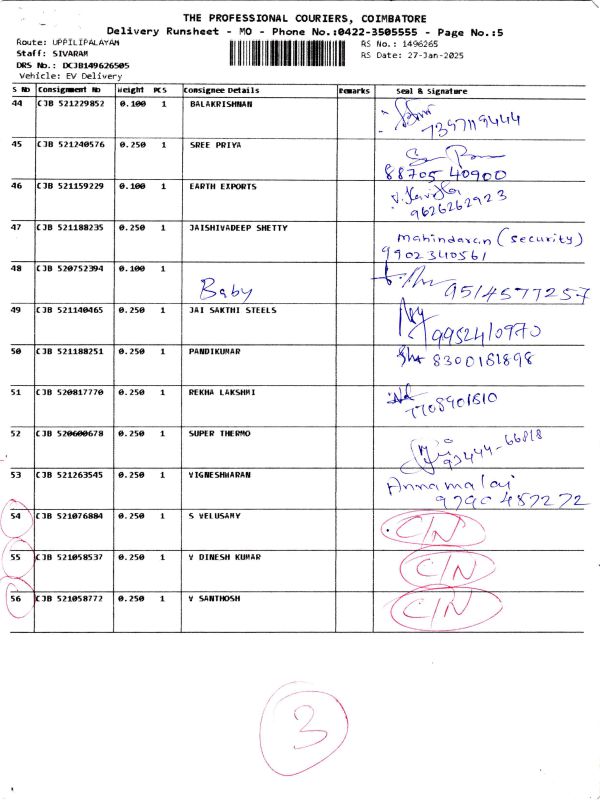 THE PROFESSIONAL COURIERS, COIMBATORE
Delivery Runsheet - MO - Phone No.:0422-3505555 - Page No.:5
Route: UPPILIPALAYAM
Staff: SIVARAM
DRS No.: DCJB149626505
Vehicle: EV Delivery
RS No.: 1496265
RS Date: 27-Jan-2025
S No Consignment No Weight PCS Consignee Details Remarks Seal & Signature
44 CJB 521229852 0.100 1 BALAKRISHNAN
7397119444
45 CJB 521240576 0.250 1 SREE PRIYA
88705 40900
46 CJB 521159229 0.100 1 EARTH EXPORTS
9626262923
47 CJB 521188235 0.250 1 JAISHIVADEEP SHETTY
mahindaran (security)
9902340561
48 CJB 520752394 0.100 1
Baby 9514577257
49 CJB 521140465 0.250 1 JAI SAKTHI STEELS
9952410970
50 CJB 521188251 0.250 1 PANDIKUMAR
8300181898
51 CJB 520817770 0.250 1 REKHA LAKSHMI
7708901810
52 CJB 520600678 0.250 1 SUPER THERMO
93444-66818
53 CJB 521263545 0.250 1 VIGNESHWARAN
Annamalai
9790487272
54 CJB 521076884 0.250 1 S VELUSAMY C/N
55 CJB 521058537 0.250 1 V DINESH KUMAR C/N
56 CJB 521058772 0.250 1 V SANTHOSH C/N
3